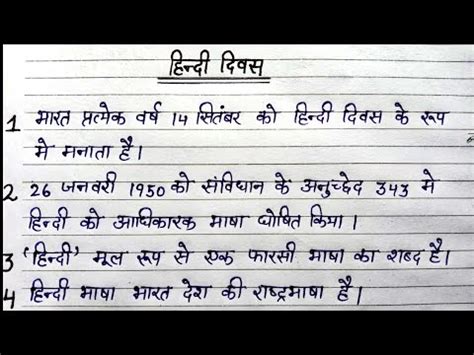 हिन्दी दिवस
1 भारत प्रत्मेक वर्ष 14 सितंबर को हिन्दी दिवस के रूप
मे मनाता है।
2 26 जनवरी 1950 को संविधान के अनुच्छेद 343 मे
हिन्दी को आधिकारक भाषा घोषित किया।
3 'हिन्दी' मूल रूप से एक फारसी भाषा का शब्द है।
4 हिन्दी भाषा भारत देश की राष्ट्रभाषा है।